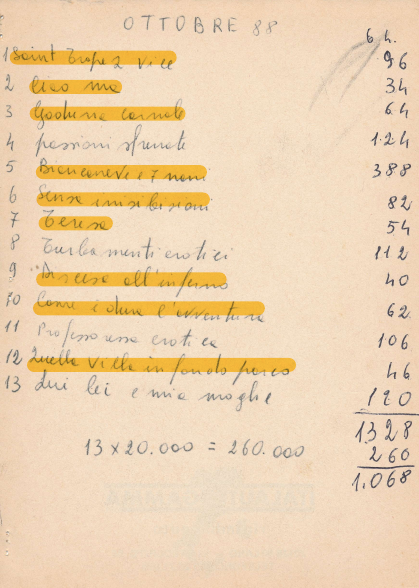 OTTOBRE 88
6 h.
1 Saint Tropez Vice 96
2 Ciao ma 34
3 Goduria carnale 64
4 passioni sfrenate 124
5 Biancaneve e 7 nani 388
6 Senza inibizioni 82
7 Teresa 54
8 Turbamenti erotici 112
9 Discesa all'inferno 40
10 Come è dura l'avventura 62
11 Professoressa erotica 106
12 Quella Villa in fondo parco 46
13 lui lei e mia moglie 120
1328
13 x 20.000 = 260.000 260
1.068